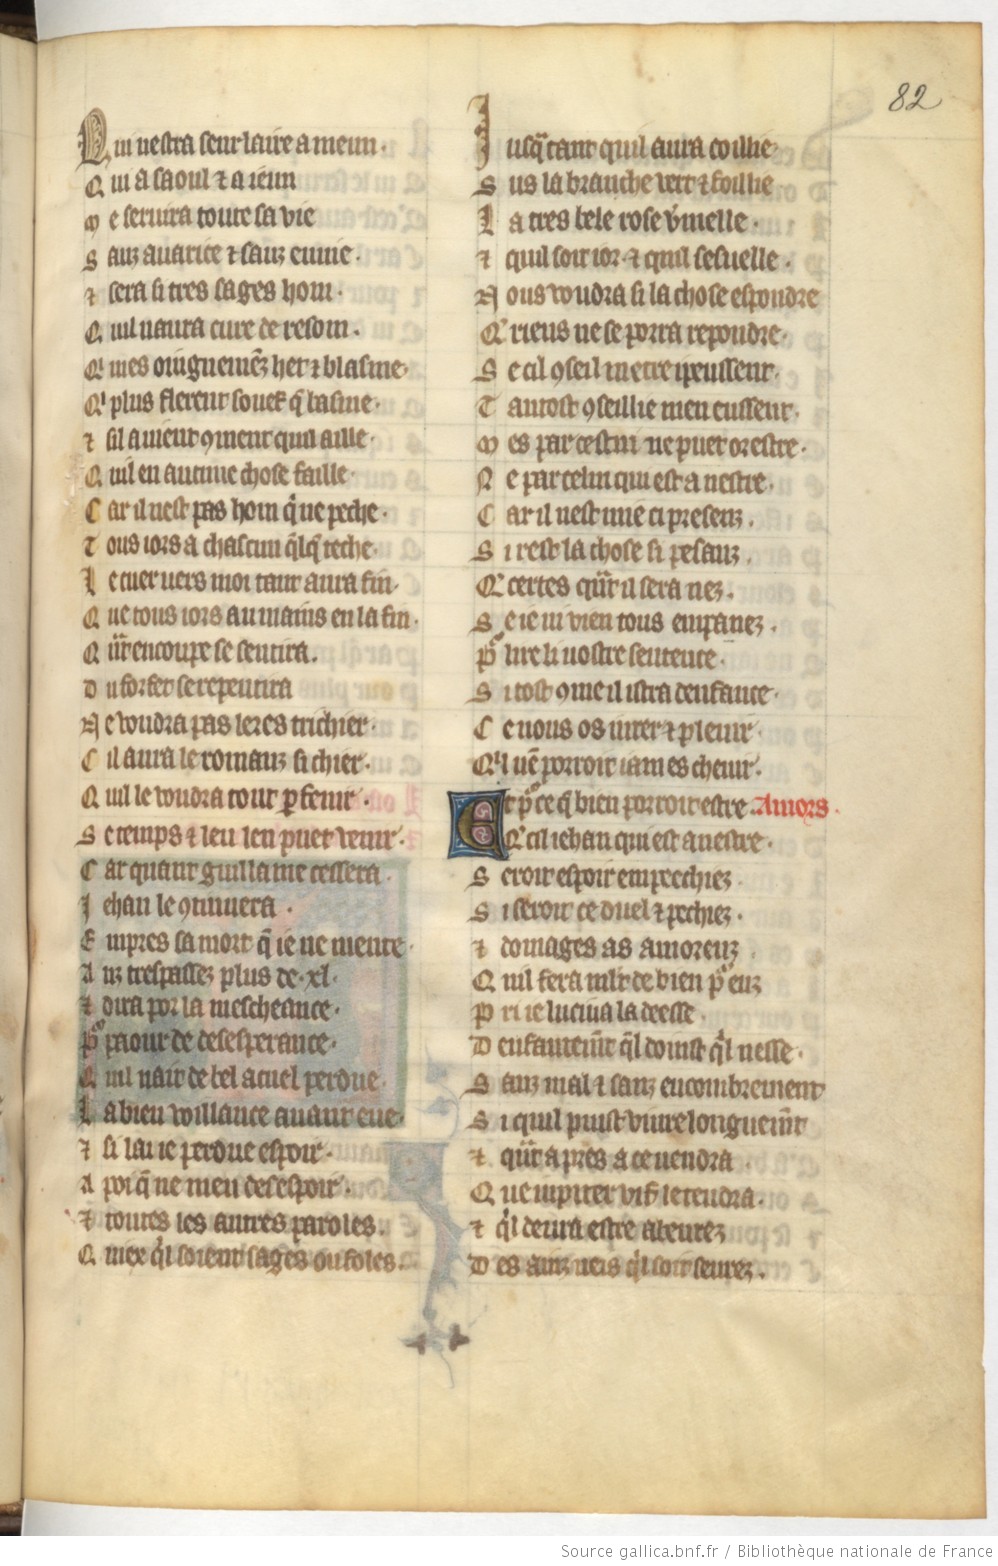 82
Qui nestra seur laire a meun.
Qui a saoul ⁊ a ieun
Me seruira toute sa vie
Sanz auarice ⁊ sanz enuie.
⁊ sera si tres sages hom.
Quil naura cure de reson.
Q' mes oingnemēz het ⁊ blasme.
Q' plus flerent souef q̄ basme.
⁊ sil auient ꝯment quil aille.
Quil en aucune chose faille.
Car il nest pas hom q̄ ne peche.
Tous iors a chascun q̄lq̄ teche.
Le cuer uers moi tant aura fin.
Que tous iors au mains en la fin.
Qūt en coupe se sentira.
Du forfet se repentira
Ne voudra pas leres trichier.
Cil aura le romanz si chier.
Quil le voudra tout ꝑfenir.
Se temps ⁊ leu len puet venir.
Car quant guillame cessera.
Jehan le ꝯtinuera.
Empres sa mort q̄ ie ne mente.
Anz trespassez plus de .xl.
⁊ dira por la mescheance.
P͛ paour de desesperance.
Quil nait de bel acuel perdue.
La bien voillance auant eue.
⁊ si lai ie perdue espoir.
A poi q̄ ne men desespoir.
⁊ toutes les autres paroles.
Quiex q̄l soient sages ou foles.
Jusq̄ tant quil aura coillie
Sus la branche vert ⁊ foillie
La tres bele rose v̄meille.
⁊ quil soit ior ⁊ quil sesuelle.
Nous voudra si la chose espondre
Q' riens ne se porra repondre.
Se cil ꝯseil metre i peussent.
Tantost ꝯseillie men eussent.
Mes par cestui ne puet or estre.
Ne par celui qui est a nestre.
Car il nest mie ci presenz.
Si rest la chose si pesanz.
Q' certes qūt il sera nez.
Se ie ni vien tous empanez.
P͛ lire li uostre sentence.
Si tost ꝯme il istra denfance.
Ce uous os iurer ⁊ pleuir.
Q'l nē porroit iames cheuir.
Et p͛ce q̄ bien porroit estre. Amors.
Q' cil iehan qui est a nestre.
Seroit espoir empeechiez
Si seroit ce duel ⁊ pechiez.
⁊ domages as amoreuz
Quil fera mlt de bien p͛ euz
Pri ie lucina la deesse.
Denfantem̄t q̄l doinst q̄l nesse.
Sanz mal ⁊ sanz encombrement
Si quil puist viure longuem̄t
⁊ qūt apres a ce uendra
Que iupiter vif le tendra.
⁊ q̄l deura estre abeurez
Des ainz neis q̄l soit seurez.
Source gallica.bnf.fr / Bibliothèque nationale de France